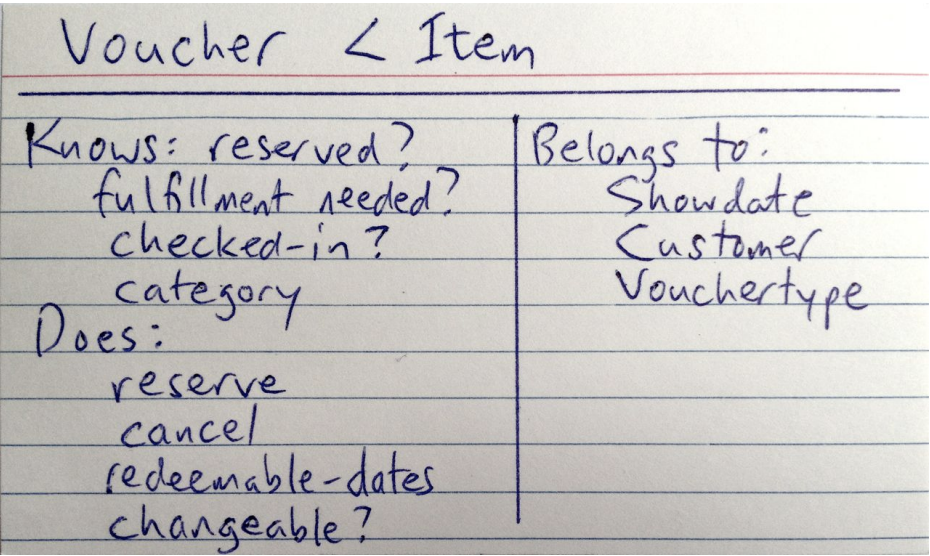 Voucher < Item
Knows: reserved?
fulfillment needed?
checked-in?
category
Does:
reserve
cancel
redeemable-dates
changeable?
Belongs to:
Showdate
Customer
Vouchertype